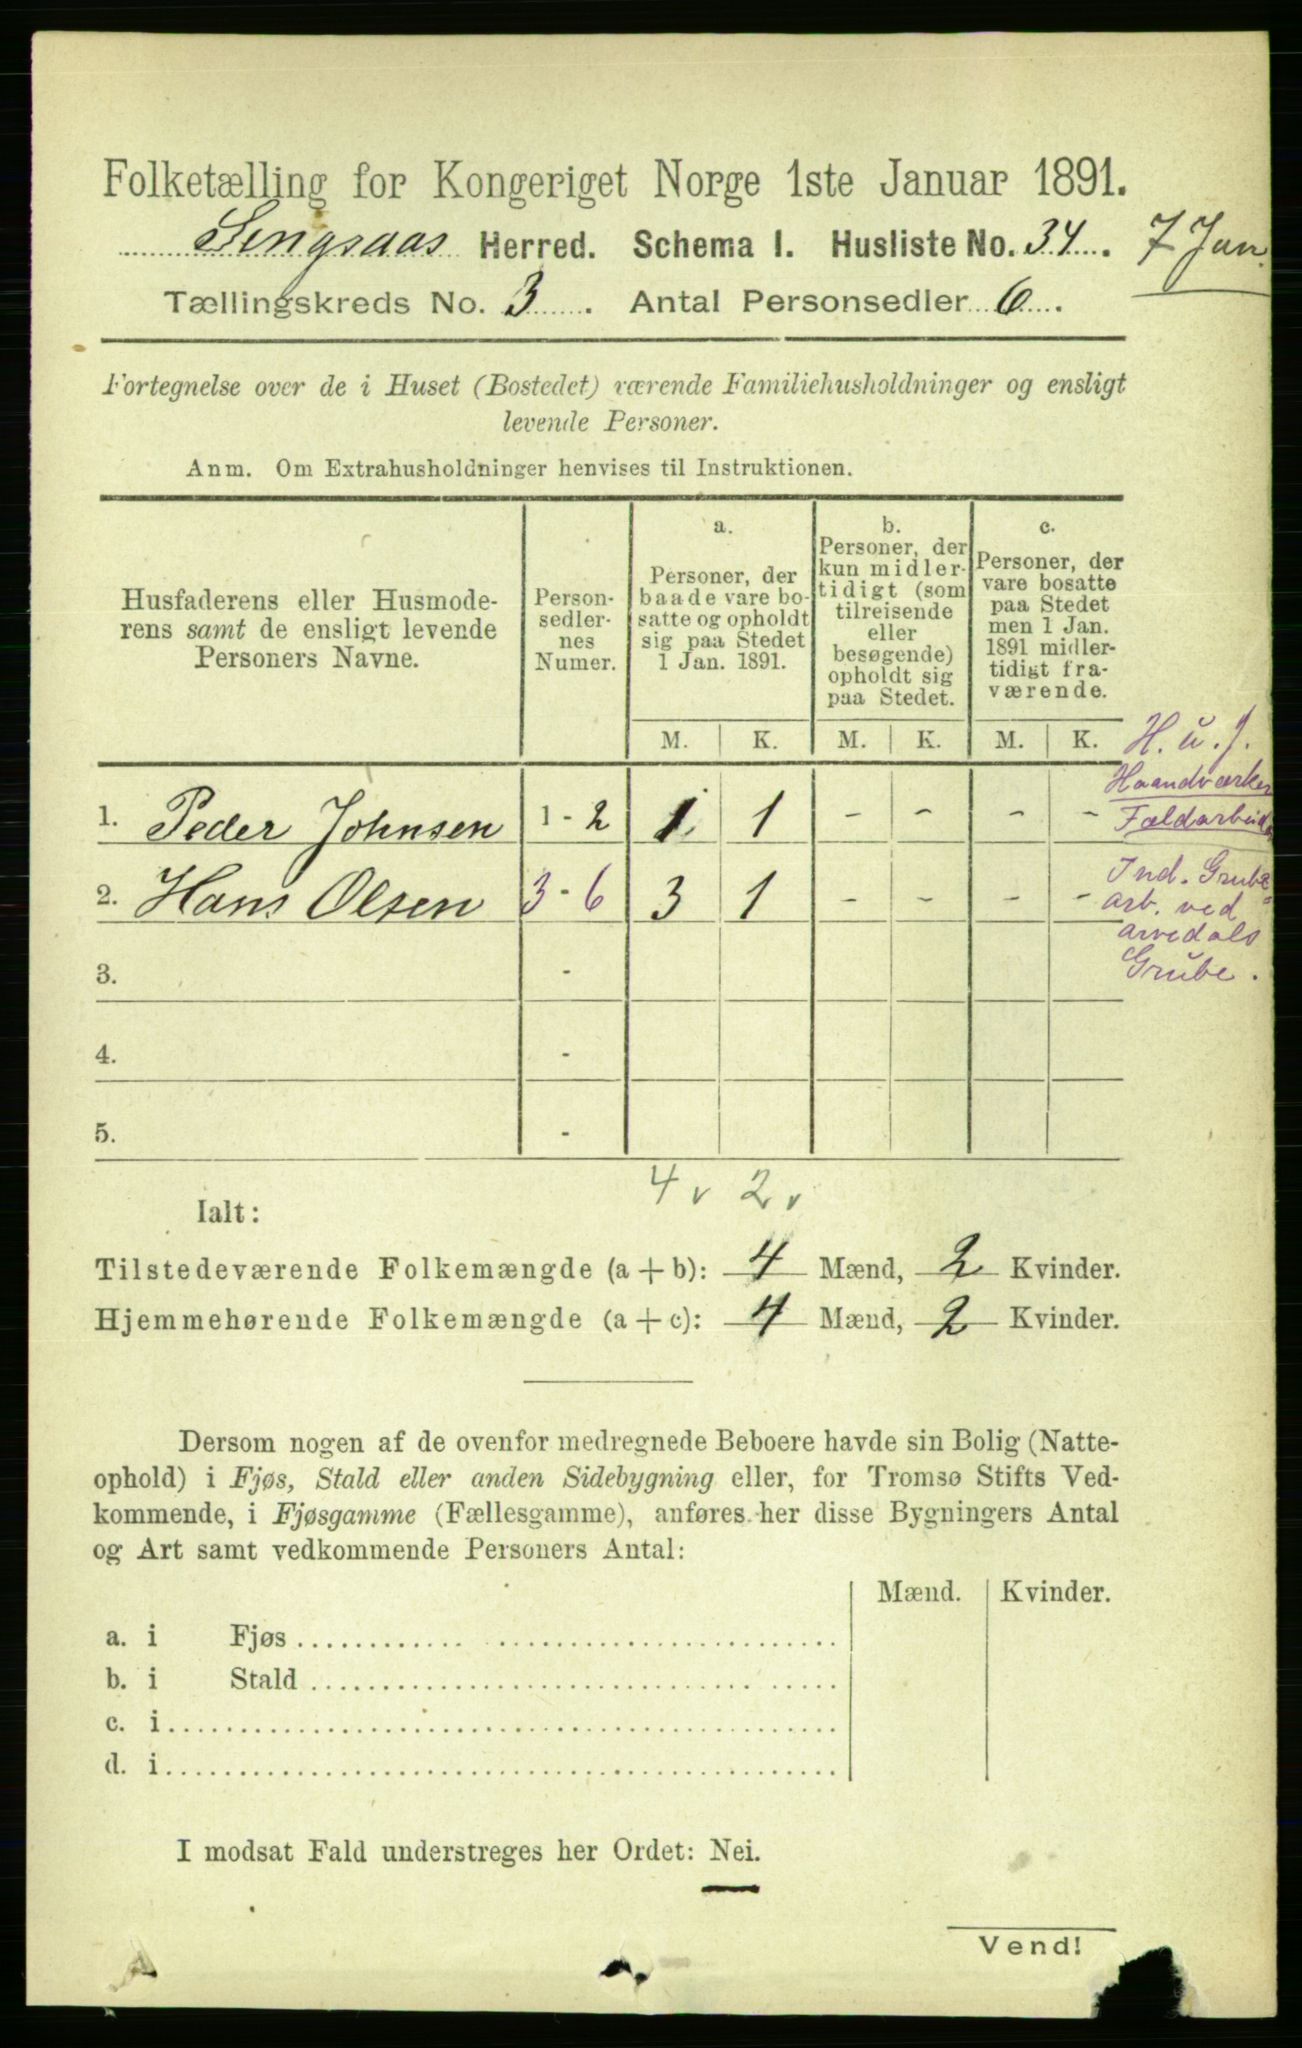 Folketælling for Kongeriget Norge 1ste Januar 1891.
Singsaas Herred. Schema I. Husliste No. 34. 7 Jan.
Tællingskreds No. 3. Antal Personsedler 6.
Fortegnelse over de i Huset (Bostedet) værende Familiehusholdninger og ensligt
levende Personer.
Anm. Om Extrahusholdninger henvises til Instruktionen.
Husfaderens eller Husmode-
rens samt de ensligt levende
Personers Navne.
Person-
sedler-
nes
Numer.
a.
Personer, der
baade vare bo-
satte og opholdt
sig paa Stedet
1 Jan. 1891.
b.
Personer, der
kun midler-
tidigt (som
tilreisende
eller
besøgende)
opholdt sig
paa Stedet.
c.
Personer, der
vare bosatte
paa Stedet
men 1 Jan.
1891 midler-
tidigt fra-
værende.
M. K. M. K. M. K.
H. u. J.
Haandværker
1. Peder Johnsen 1-2 1 1 - - - -
2. Hans Olsen 3-6 3 1 - - - -
Ind. Grube-
arb. ved
Arvedals
Grube.
3. -
4. -
5. -
4 v 2 v
Ialt:
Tilstedeværende Folkemængde (a + b): 4 Mænd, 2 Kvinder.
Hjemmehørende Folkemængde (a + c): 4 Mænd, 2 Kvinder.
Dersom nogen af de ovenfor medregnede Beboere havde sin Bolig (Natte-
ophold) i Fjøs, Stald eller anden Sidebygning eller, for Tromsø Stifts Ved-
kommende, i Fjøsgamme (Fællesgamme), anføres her disse Bygningers Antal
og Art samt vedkommende Personers Antal:
Mænd. Kvinder.
a. i Fjøs
b. i Stald
c. i
d. i
I modsat Fald understreges her Ordet: Nei.
Vend!